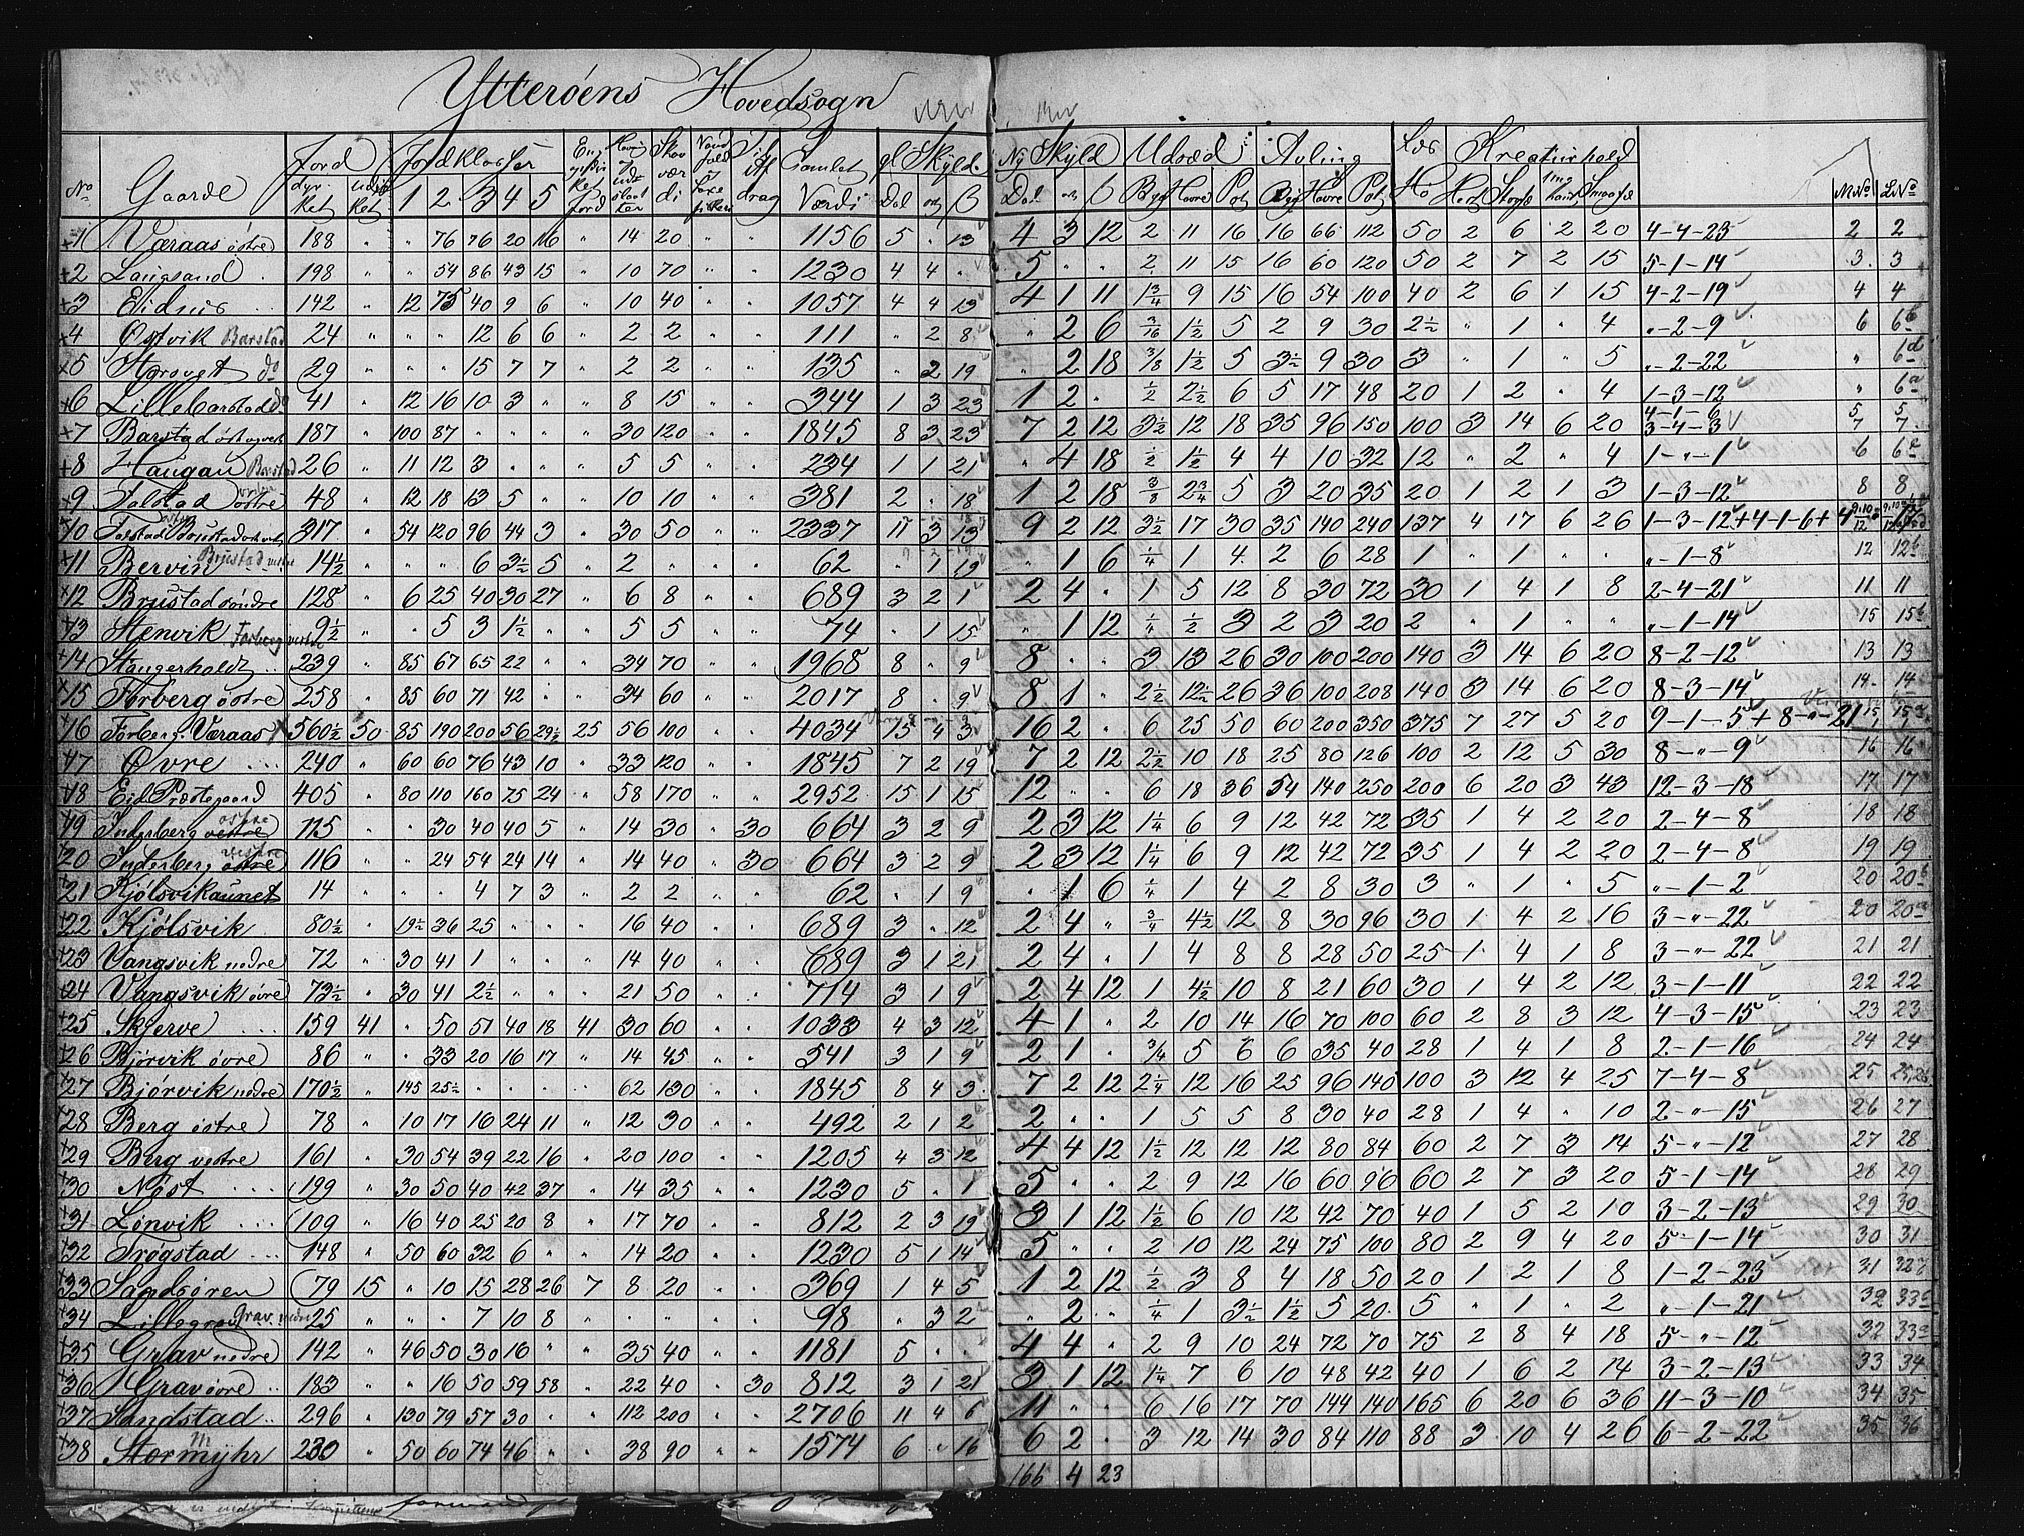 Ytterøens Hovedsogn
No Gaarde Jord Jordklasser Skov Samlet gl Skyld Ny Skyld Udsæd Avling Læs Kreaturhold
dyrket udyrket 1 2 3 4 5 Værdi Dal ort ß Dal ort ß Byg Havre Pot Byg Havre Pot Hø Hest Storfæ Smaafæ M No L No
1 Væraas østre 188 " " 76 76 20 16 " 14 20 " " 1156 5 . 13 4 3 12 2 11 16 16 66 112 50 2 6 2 20 4-4-23 2 2
2 Langsand 198 " " 54 86 43 15 " 10 70 " " 1230 4 4 . 5 " . 2 11 15 16 60 120 50 2 7 2 15 5-1-14 3 3
3 Eidnes 142 " 12 75 40 9 6 " 10 40 " " 1057 4 4 13 4 1 11 1 3/4 9 15 16 54 100 40 2 6 1 15 4-2-19 4 4
4 Østvik Barstad 24 " " " 12 6 6 " 2 2 " " 111 " 2 8 " 2 6 3/16 1 1/2 5 2 9 30 2 1/2 " 1 " 4 "-2-9 6 6b
5 Hgrovet do 29 " " " 15 7 7 " 2 2 " " 135 " 2 19 " 2 18 3/8 1 1/2 5 3 1/2 9 30 3 " 1 " 5 "-2-22 " 6d
6 Lillebarstad do 41 " 12 16 10 3 " " 8 15 " " 344 1 3 23 1 2 . 1/2 2 1/2 6 5 17 48 20 1 2 " 4 1-3-12 " 6a
7 Barstad øst og vest 187 " 100 87 " " " " 30 120 " " 1845 8 3 23 7 2 12 3 1/2 12 18 35 96 150 100 3 14 6 20 4-1-6 3-4-3 5 7 5 7
8 Haugan Barstad 26 " 11 12 3 " " " 5 5 " " 234 1 1 21 " 4 18 1/2 1 1/2 4 4 10 32 12 " 2 " 4 1-"-1 6 6c
9 Jalstad østre 48 " 12 18 13 5 " " 10 10 " " 381 2 . 18 1 2 18 3/8 2 3/4 5 3 20 35 20 1 2 1 3 1-3-12 8 8
10 317 " 54 120 96 44 3 " 30 50 " " 2337 11 3 13 9 2 12 3 1/2 17 30 35 140 240 137 4 17 6 26 1-3-12+4-1-6+4
11 Bervin Brustad vestre 14 1/2 " " " 6 3 1/2 5 " 2 " " " 62 " 1 19 " 1 6 1/4 1 4 2 6 28 1 " 1 " " "-1-8 12 12b
12 Brustad søndre 128 " 6 25 40 30 27 " 6 8 " " 689 3 2 1 2 4 . 1 5 12 8 30 72 30 1 4 1 8 2-4-21 11 11
13 Stenvik Forberg vestre 9 1/2 " " 5 3 1 1/2 " " 5 5 " " 74 " 1 15 " 1 12 1/4 1/2 3 2 3 20 2 " 1 " " "-1-14 15 15b
14 Stangerholdt 239 " 85 67 65 22 " " 34 70 " " 1968 8 " 9 8 " " 3 13 26 30 100 200 140 3 14 6 20 8-2-12 13 13
15 Forberg østre 258 " 85 60 71 42 " " 34 60 " " 2017 8 " 9 8 1 " 2 1/2 12 1/2 26 36 100 208 140 3 14 6 20 8-3-14 14 14
16 Forberg Væraas 560 1/2 50 85 190 200 56 29 1/2 25 56 100 " " 4034 15 4 3 16 2 " 6 25 50 60 200 350 375 7 27 5 20 9-1-5+8-"-21 15 15a
17 Øvre 240 " 60 60 76 43 10 " 33 120 " " 1845 7 2 19 7 2 12 2 1/2 10 18 25 80 126 100 2 12 5 30 8-"-9 16 16
18 Eid Præstegaard 405 " 80 110 160 75 24 " 58 170 " " 2952 15 1 15 12 " " 6 18 36 54 140 250 200 6 20 3 43 12-3-18 17 17
19 Inderberg østre 115 " " 30 40 40 5 " 14 30 " 30 664 3 2 9 2 3 12 1 1/4 6 9 12 42 72 35 1 4 2 20 2-4-8 18 18
20 Inderberg vestre 116 " " 24 54 24 14 " 14 40 " 30 664 3 2 9 2 3 12 1 1/4 6 9 12 42 72 35 1 4 2 20 2-4-8 19 19
21 Kjølsvikaunet 14 " " " 4 7 3 " 2 2 " . 62 " 1 9 " 1 6 1/4 1 4 2 8 30 3 " 1 " 5 "-1-2 20 20b
22 Kjølsvik 80 1/2 " 19 1/2 36 25 " " " 16 40 " " 689 3 . 12 2 4 " 3/4 4 1/2 12 8 30 96 30 1 4 2 16 3-"-22 20 20a
23 Vangsvik nedre 72 " 30 41 1 " " " 14 40 " " 689 3 1 21 2 4 . 1 4 8 8 28 50 25 1 4 1 8 3-"-22 21 21
24 Vangsvik øvre 73 1/2 " 30 41 2 1/2 " " " 21 50 " " 714 3 1 9 2 4 12 1 4 1/2 10 8 21 60 30 1 4 2 12 3-1-11 22 22
25 Skjerve 159 41 " 50 51 40 18 41 30 60 " " 1033 4 3 12 4 1 . 2 10 14 16 70 100 60 2 8 3 12 4-3-15 23 23
26 Bjørvik øvre 86 " " 33 20 16 17 " 14 45 " " 541 3 1 9 2 1 . 3/4 5 6 6 35 40 28 1 4 1 8 2-1-16 24 24
27 Bjørvik nedre 170 1/2 " 145 25 1/2 " " " " 62 130 " " 1845 8 4 3 7 2 12 2 1/4 12 16 25 96 140 100 3 12 4 25 7-4-8 25 25,26
28 Berg østre 78 " 10 17 16 24 11 " 12 30 " " 492 2 1 2 2 . . 1 5 5 8 30 40 28 1 4 " 10 2-"-15 26 27
29 Berg vestre 161 " 30 54 39 22 16 " 20 100 " " 1205 4 3 12 4 4 12 1 1/2 12 12 12 80 84 60 2 7 3 14 5-"-12 27 28
30 Nøst 199 " 30 50 40 42 37 " 14 35 " " 1230 5 . 1 5 " " 2 9 12 16 60 96 60 2 7 3 20 5-1-14 28 29
31 Lønvik 109 " 16 40 25 20 8 " 17 70 " " 812 2 3 19 3 1 12 1 1/2 6 10 12 42 70 40 1 5 2 10 3-2-13 29 30
32 Trøgstad 148 " 50 60 32 6 " " 14 20 " " 1230 5 1 14 5 " " 2 10 12 24 75 100 80 2 9 4 20 5-1-14 30 31
33 Sandsøren 79 15 " 10 15 28 26 7 8 20 " " 369 1 4 5 1 2 12 1/2 3 8 4 18 50 20 1 2 1 8 1-2-23 31 32
34 Lillegrav Grav nedre 25 " " " 7 10 8 " " " " " 98 " 3 2 " 2 " 1/4 1 3 1/2 1 1/2 5 20 5 " 1 " 2 "-1-21 32 33c
35 Grav nedre 142 " 46 50 30 16 " " 35 40 " " 1181 5 . . 4 4 " 2 9 10 24 72 70 75 2 8 4 18 5-"-12 32 33a
36 Grav øvre 183 " " 16 50 59 58 " 22 40 " 30 812 3 1 21 3 1 12 1 1/4 7 6 10 48 42 40 1 6 2 14 3-2-13 33 34
37 Sandstad 296 " 130 79 57 30 " " 112 200 " " 2706 11 4 6 11 " " 6 16 17 70 144 140 165 6 20 6 36 11-3-10 34 35
38 Stormyhr 230 " 50 60 74 46 " " 38 90 " " 1574 6 " 16 6 2 . 3 12 14 30 84 110 88 3 10 4 26 6-2-22 35 36
166 4 23